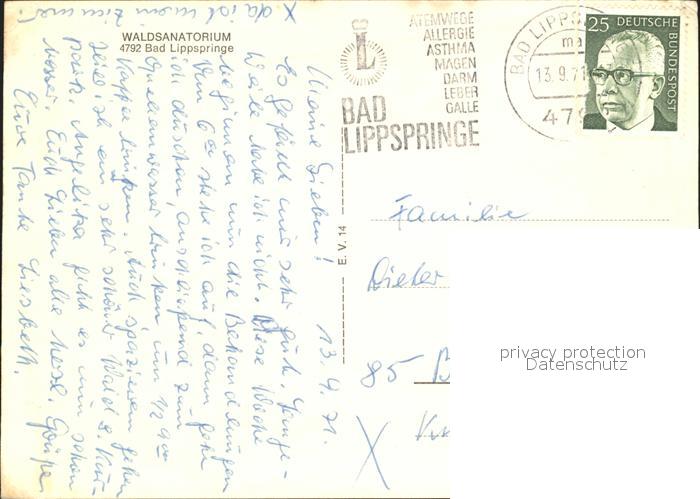 WALDSANATORIUM
4792 Bad Lippspringe
ATEMWEGE
ALLERGIE
ASTHMA
MAGEN
DARM
LEBER
GALLE
L
BAD
LIPPSPRINGE
BAD LIPPS
ma
13.9.71
479
25 DEUTSCHE
BUNDESPOST
E. V. 14
13. 9. 71.
Meine Lieben!
Es gefällt mir sehr gut. Lange-
weile habe ich nicht. Diese Woche
beginnen nun die Behandlungen
Um 6 00 stehe ich auf, dann gehe
ich duschen, anschließend zum
Quellenwasser trinken um 1/2 9 00
Kaffee trinken. Auch spazieren gehen
hier ist ein sehr schöner Wald u. Kur-
park. Angelika geht es nun schon
besser. Euch Lieben alle herzl. Grüße
Eure Tante Liesbeth.
Familie
Dieter
85
X
privacy protection
Datenschutz